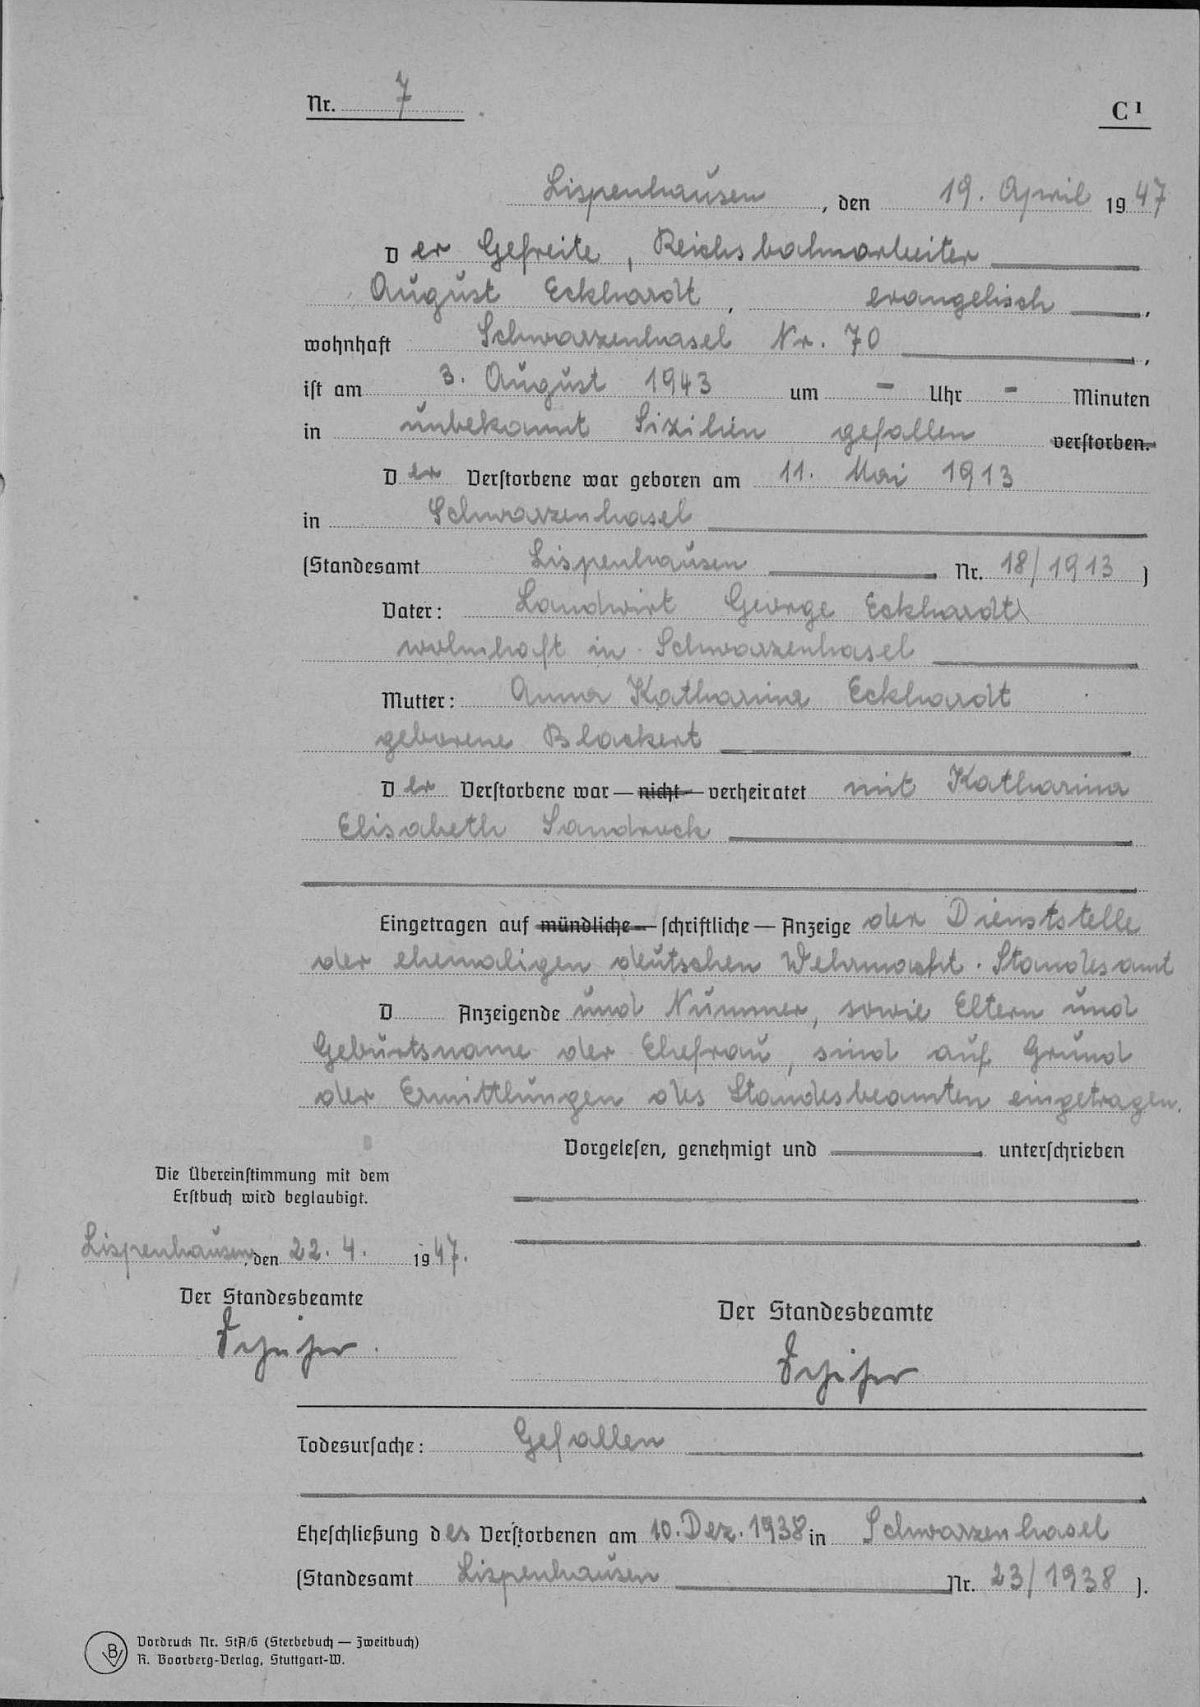 Nr. 7
C 1
Lispenhausen, den 19. April 1947
Der Gefreite, Reichsbahnarbeiter
August Eckhardt, evangelisch,
wohnhaft Schwarzenhasel Nr. 70,
ist am 3. August 1943 um - Uhr - Minuten
in unbekannt Sizilien gefallen verstorben.
Der Verstorbene war geboren am 11. Mai 1913
in Schwarzenhasel
(Standesamt Lispenhausen Nr. 18/1913)
Vater: Landwirt George Eckhardt
wohnhaft in Schwarzenhasel
Mutter: Anna Katharina Eckhardt
geborene Blackert
Der Verstorbene war — nicht — verheiratet mit Katharina
Elisabeth Sandrock
Eingetragen auf mündliche — schriftliche — Anzeige der Dienststelle
der ehemaligen deutschen Wehrmacht. Standesamt
D Anzeigende und Nummer, sowie Eltern und
Geburtsname der Ehefrau, sind auf Grund
der Ermittlungen des Standesbeamten eingetragen.
Vorgelesen, genehmigt und unterschrieben
Die Übereinstimmung mit dem
Erstbuch wird beglaubigt.
Lispenhausen, den 22. 4. 1947.
Der Standesbeamte
Der Standesbeamte
Todesursache: Gefallen
Eheschließung des Verstorbenen am 10. Dez. 1938 in Schwarzenhasel
(Standesamt Lispenhausen Nr. 23/1938).
B
Vordruck Nr. StA/6 (Sterbebuch — Zweitbuch)
R. Boorberg-Verlag, Stuttgart-W.